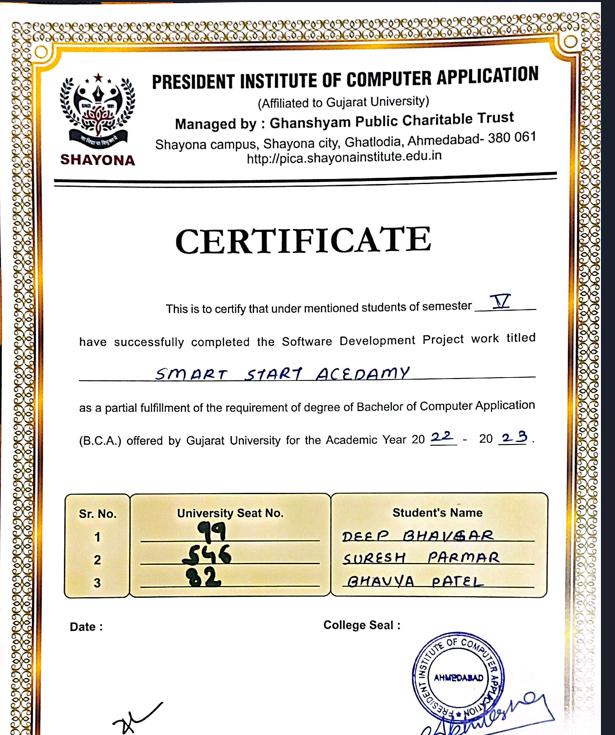 PRESIDENT INSTITUTE OF COMPUTER APPLICATION
(Affiliated to Gujarat University)
Managed by : Ghanshyam Public Charitable Trust
Shayona campus, Shayona city, Ghatlodia, Ahmedabad- 380 061
http://pica.shayonainstitute.edu.in
SHAYONA
CERTIFICATE
This is to certify that under mentioned students of semester V
have successfully completed the Software Development Project work titled
SMART START ACEDAMY
as a partial fulfillment of the requirement of degree of Bachelor of Computer Application
(B.C.A.) offered by Gujarat University for the Academic Year 20 22 - 20 23 .
Sr. No. University Seat No. Student's Name
1 99 DEEP BHAVSAR
2 546 SURESH PARMAR
3 82 BHAVYA PATEL
Date : College Seal :
PRESIDENT INSTITUTE OF COMPUTER APPLICATION
AHMEDABAD